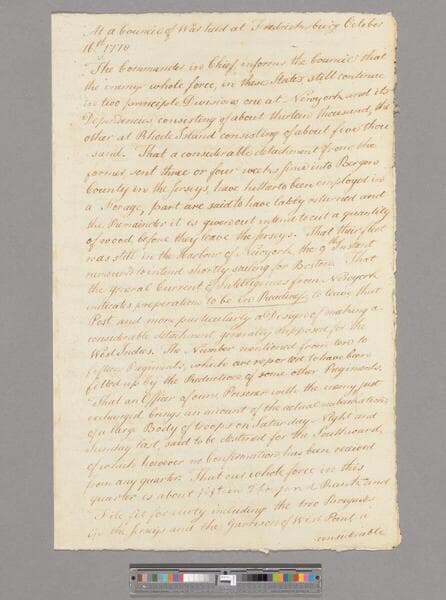 At a Council of War held at Fredricksburg October
16th 1778
The Commander in Chief informs the Council that
the enemys whole force, in these States still continue
in two principle Divisions one at Newyork and its
Dependencies consisting of about thirteen thousand, the
other at Rhode Island consisting of about five thou
sand. That a considerable detachment from the
former sent three or four weeks since into Bergen
County in the Jerseys, have hitherto been employed in
a Forage, part are said to have lately returned and
the Remainder it is given out intend to cut a quantity
of wood before they leave the Jerseys. That their fleet
was still in the Harbor of Newyork the 9th Instant
rumoured to intend shortly sailing for Boston. That
the general Current of Intelligences from Newyork
indicates preparations to be in readiness to leave that
Post and more particularly a design of making a
considerable detachment generally supposed for the
West Indies. The Number mentioned from ten to
fifteen Regiments, which are reported to have been
filled up by the Reduction of some other Regiments.
That an Officer of ours Prisoner with the enemy just
exchanged brings an account of the actual embarkation
of a large Body of troops on Saturday Night and
Sunday last, said to be destined for the Southward,
of which however no confirmation has been received
from any quarter. That our whole force in this
quarter is about Rank and
File fit for duty including the two Brigades
in the Jerseys and the Garrison of West Point a
considerable